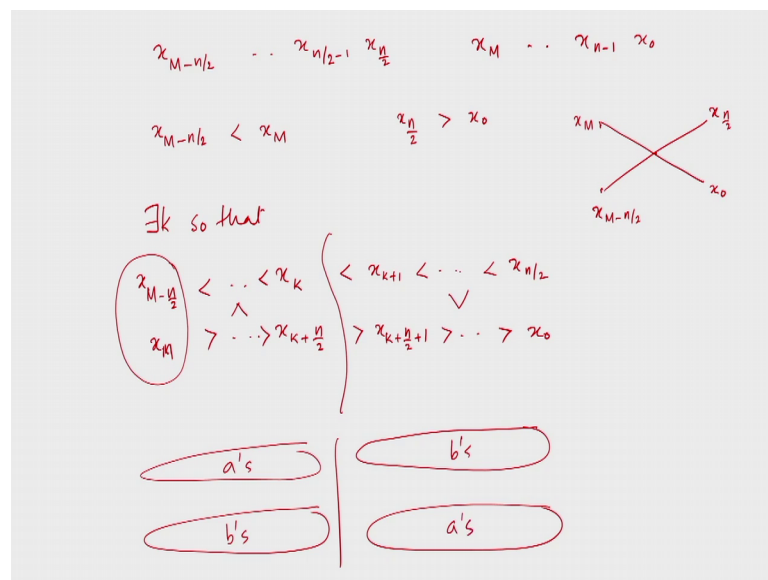 x_{M-n/2} .. x_{n/2-1} x_{n/2} x_M .. x_{n-1} x_0
x_{M-n/2} < x_M x_{n/2} > x_0
x_M x_{n/2}
x_{M-n/2} x_0
∃k so that
x_{M-n/2} < .. < x_k < x_{k+1} < ... < x_{n/2}
∧ ∨
x_M > ... > x_{k+n/2} > x_{k+n/2+1} > .. > x_0
a's b's
b's a's